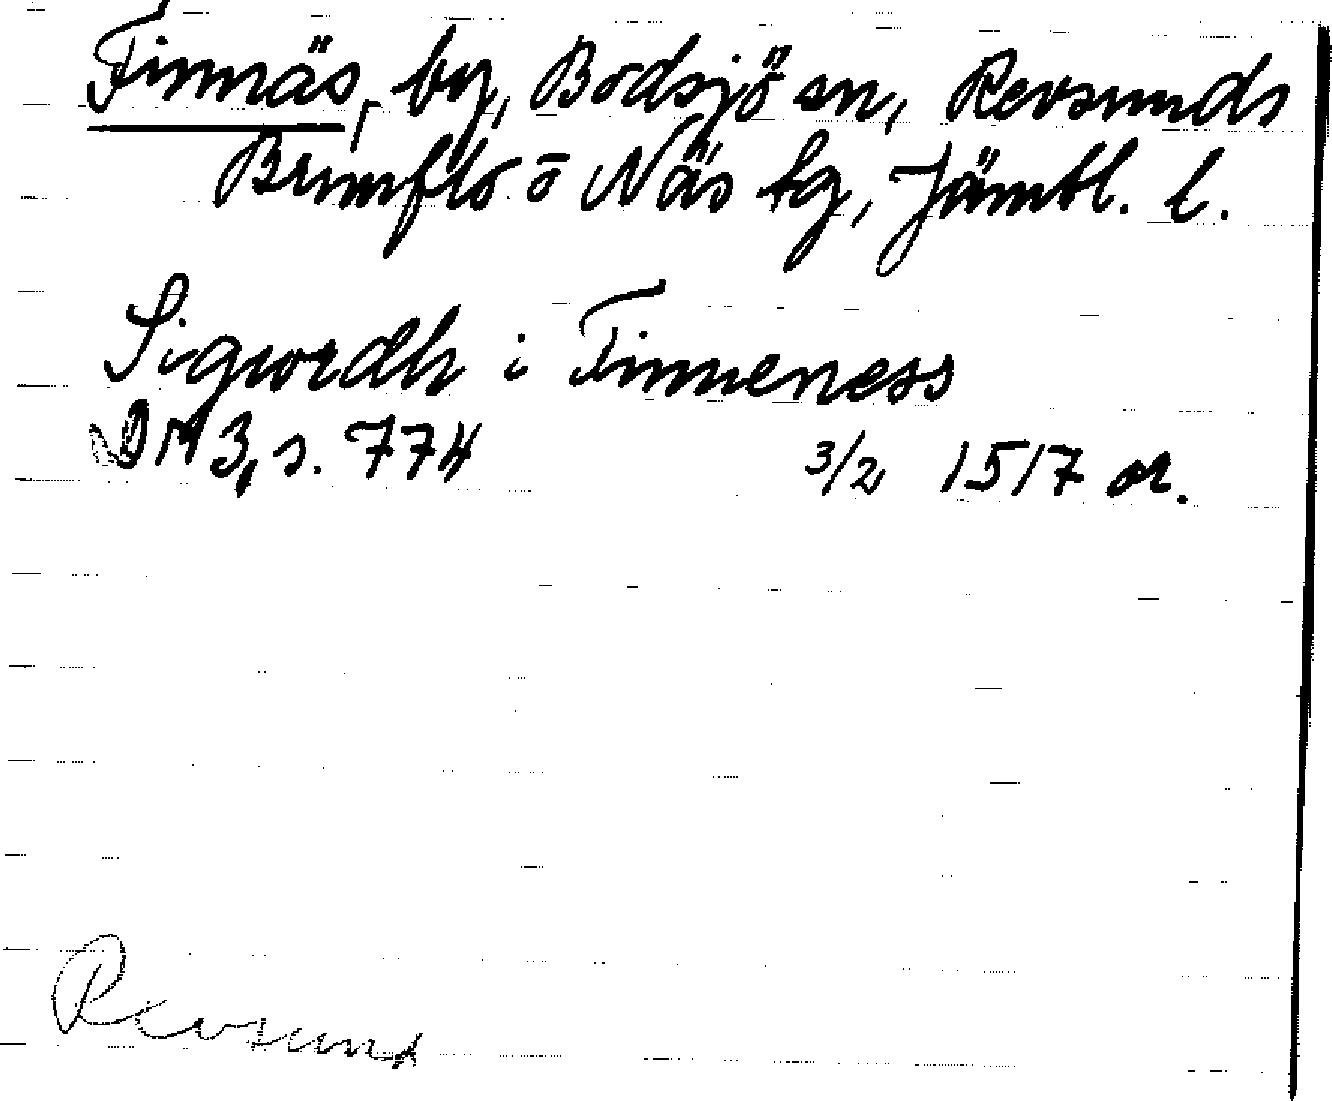 Finnäs, by, Bodsjö sn, Revsunds
Brunflo o Näs tg, Jämtl. l.
Sigwordh i Finneness
DN 3, s. 774 3/2 1517 or.
Revsund